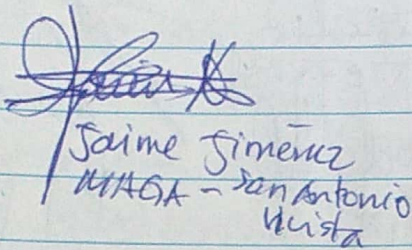 Jaime Jiménez
MAGA - San Antonio
Huista